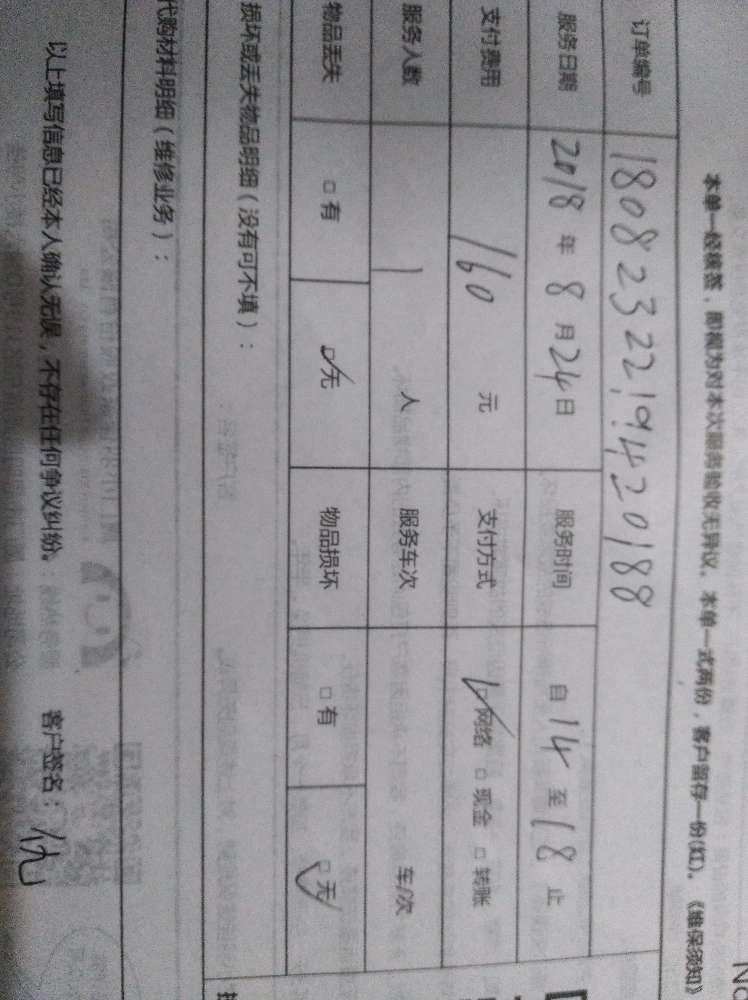 本单一经接签，即视为对本次服务验收无异议。本单一式两份，客户留存一份(红)。《维保须知》
订单编号 1808232219420188
服务日期 2018 年 8 月 24 日 服务时间 自 14 至 18 止
支付费用 160 元 支付方式 ☑网络 □现金 □转账
服务人数 1 人 服务车次 车/次
物品丢失 □有 ☑无 物品损坏 □有 ☑无
损坏或丢失物品明细（没有可不填）：
代购材料明细（维修业务）：
以上填写信息已经本人确认无误，不存在任何争议纠纷。 客户签名：